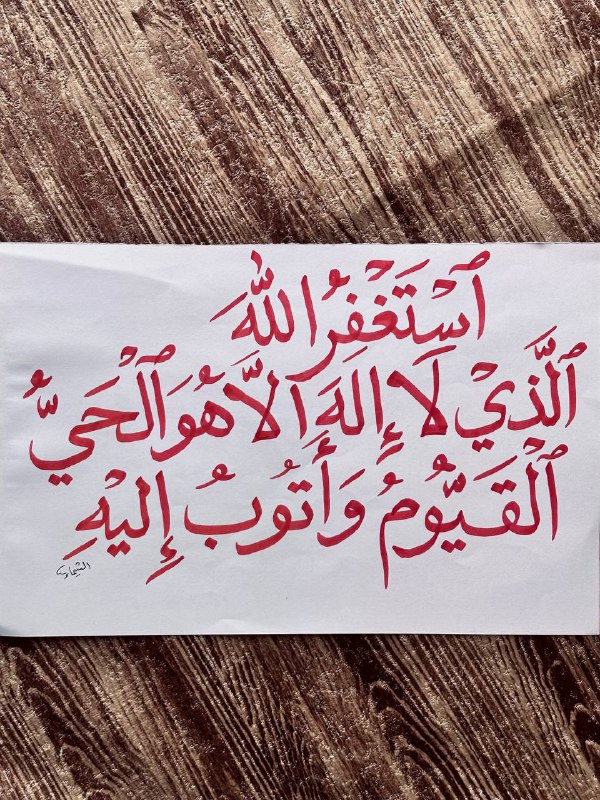 ٱسْتَغْفِرُ اللهَ
ٱلَّذِيْ لَا إِلٰهَ الَّا هُوَ ٱلْحَيُّ
ٱلْقَيُّومُ وَأَتُوبُ إِليْهِ